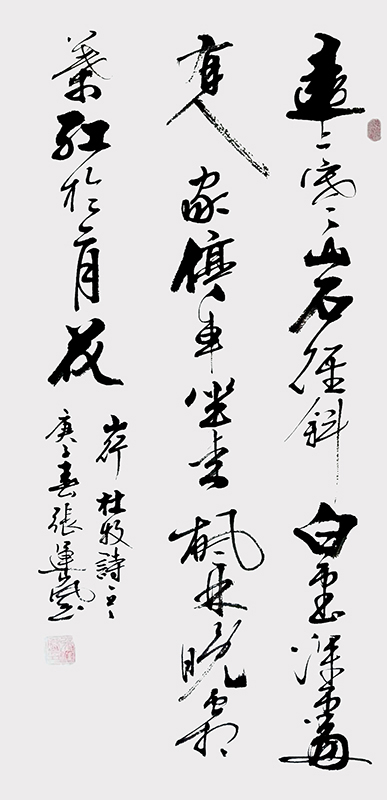 遠上寒山石徑斜白雲深處
有人家停車坐愛楓林晚霜
葉紅於二月花
山行杜牧詩
庚子春張運